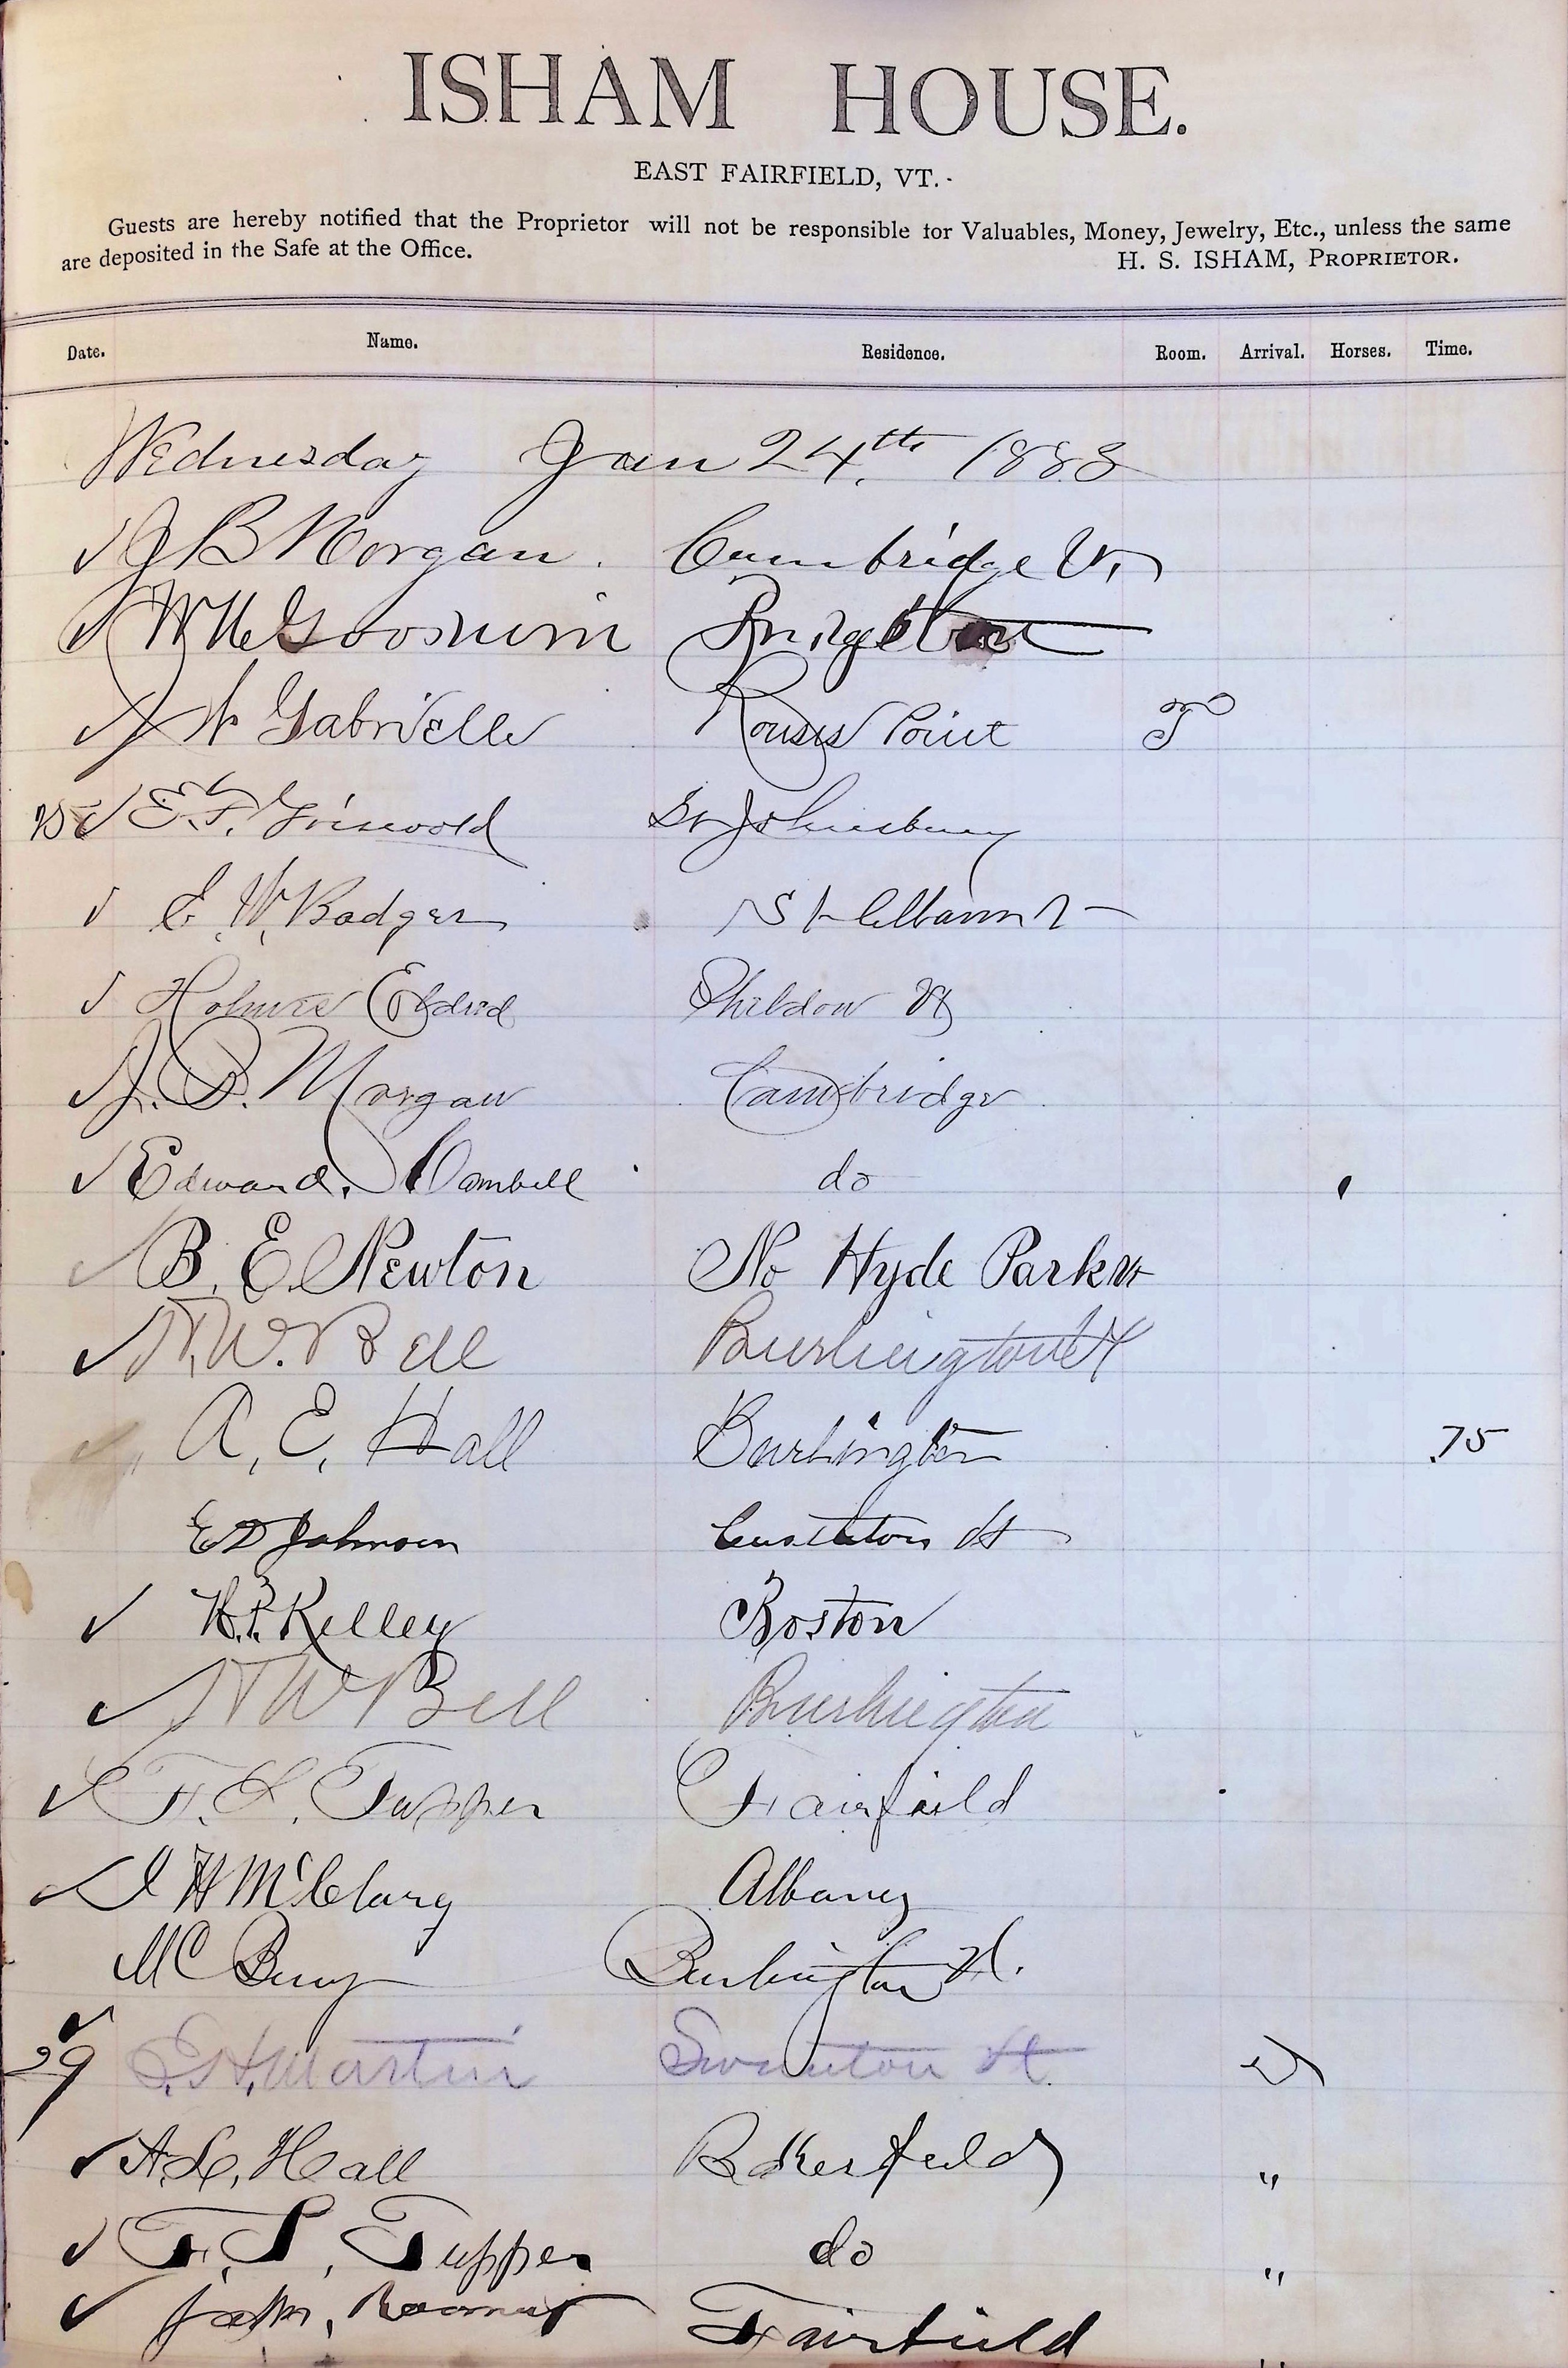 ISHAM HOUSE.
EAST FAIRFIELD, VT.
Guests are hereby notified that the Proprietor will not be responsible for Valuables, Money, Jewelry, Etc., unless the same
are deposited in the Safe at the Office. H. S. ISHAM, PROPRIETOR.
Date. Name. Residence. Room. Arrival. Horses. Time.
Wednesday Jan 24th 1883
✓ J B Morgan. Cambridge Vt
✓ Bridgeton
✓ Gabrielle Rouses Point
25 ✓ E. F. Griswold St Johnsbury
✓ E. W. Badger St Albans Vt
✓ Holmes Eldred Sheldon Vt
✓ J. B. Morgan Cambridge
✓ Edward. Cambell do
✓ B. E. Newton No Hyde Park Vt
✓ N. W. Bell Burlington Vt
✓ A. E. Hall Burlington .75
E D Johnson Castleton Vt
✓ H. P. Kelley Boston
✓ N W Bell Burlington
✓ F. S. Tupper Fairfield
✓ J H McClary Albany
M C Berry Burlington Vt.
✓
29 E. H. Martin Swanton Vt
✓ A. L. Hall Bakersfield "
✓ F. S. Tupper do "
✓ Fairfield "